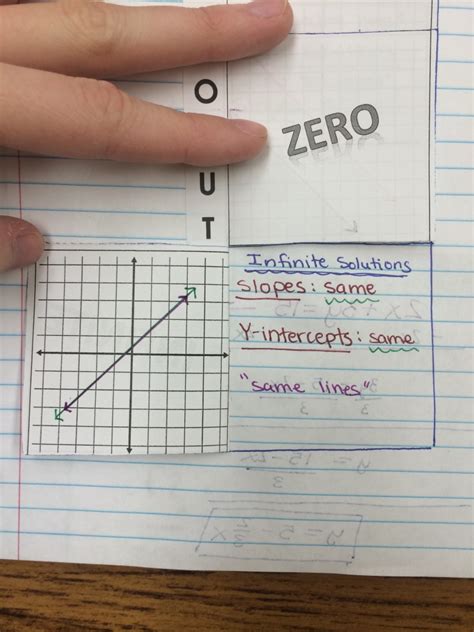 O
U
T
ZERO
Infinite Solutions
Slopes: same
Y-intercepts: same
"same lines"